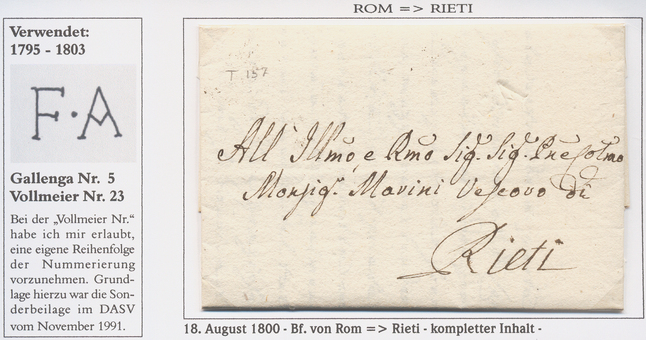 ROM => RIETI
Verwendet:
1795 - 1803
F·A
Gallenga Nr. 5
Vollmeier Nr. 23
Bei der „Vollmeier Nr.“
habe ich mir erlaubt,
eine eigene Reihenfolge
der Nummerierung
vorzunehmen. Grund-
lage hierzu war die Son-
derbeilage im DASV
vom November 1991.
T. 157
All' Illmo, e Rmo Sig. Sig. Pne Colmo
Monsig.r Marini Vescovo di
Rieti
18. August 1800 - Bf. von Rom => Rieti - kompletter Inhalt -